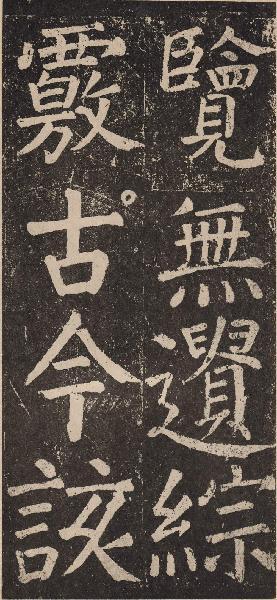 覽無遺綜
覈古今該